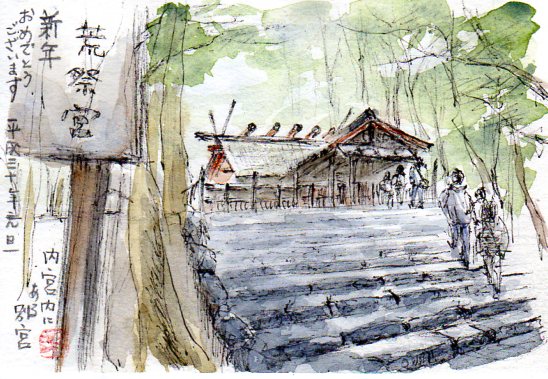 荒祭宮
新年
おめでとう、
ございます
平成三十年元旦
内宮内に
ある
別宮